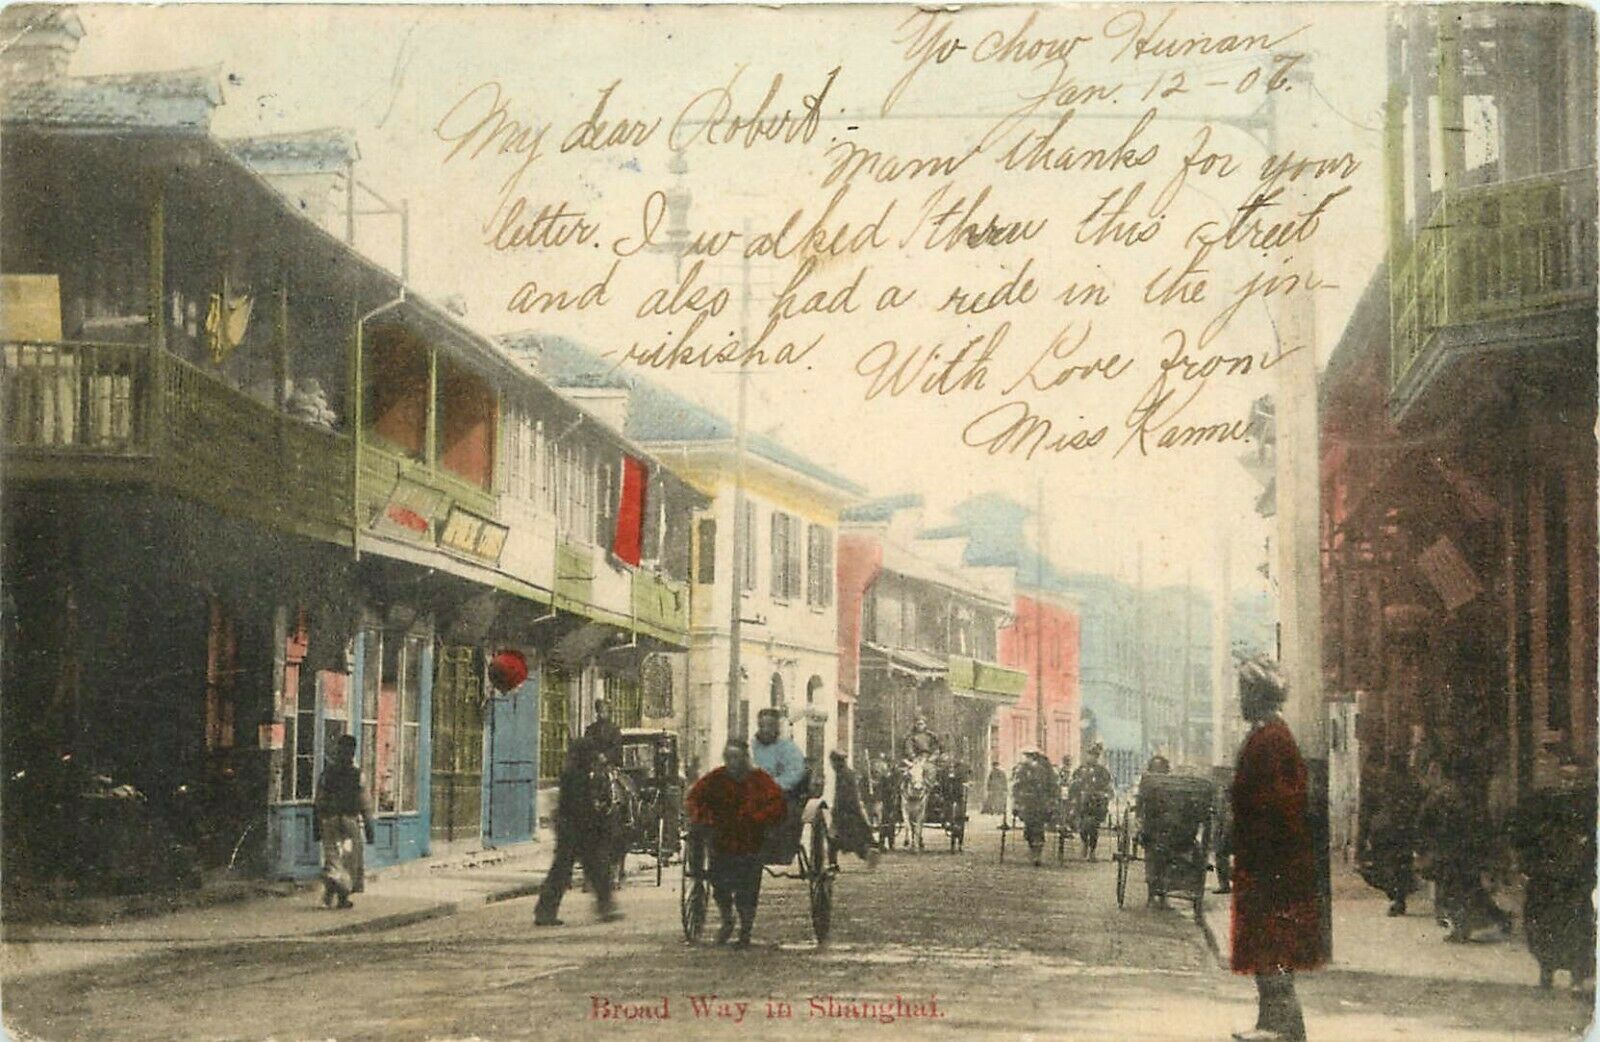 Yo chow Hunan
Jan. 12 - 07.
My dear Robert:-
Mam thanks for your
letter. I walked thru this street
and also had a ride in the jin-
rikisha. With Love from
Miss
Broad Way in Shanghai.